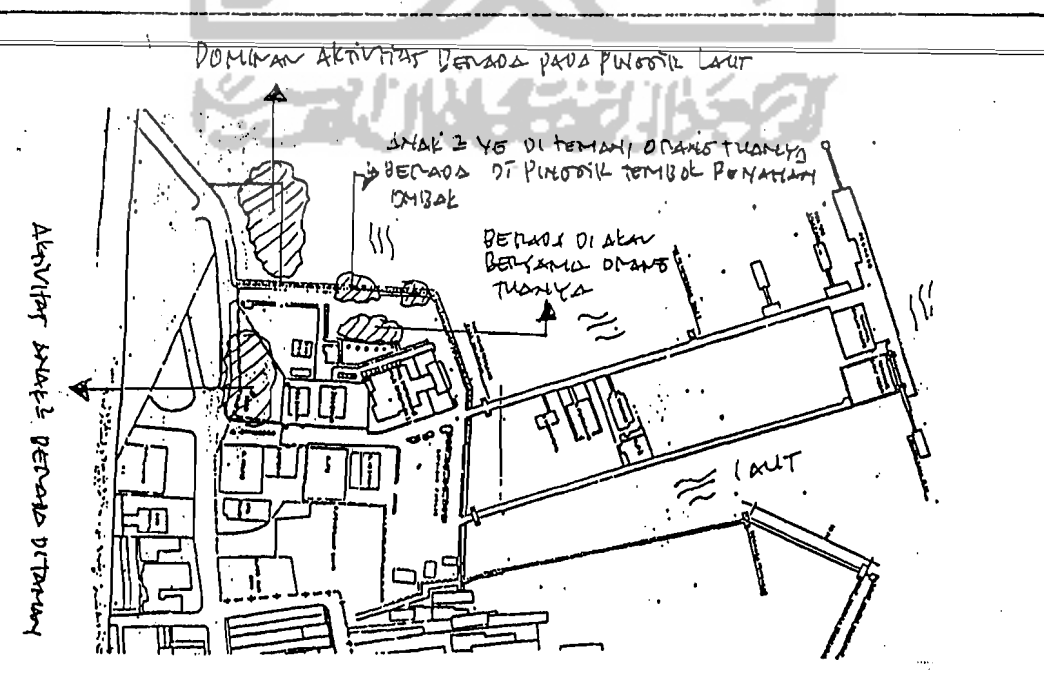 DOMINAN AKTIVITAS BERADA PADA PINGGIR LAUT
ANAK 2 YG DI TEMANI ORANG TUANYA
BERADA DI PINGGIR TEMBOK PENAHAN
OMBAK
BERADA DI AKAN
BERSAMA ORANG
TUANYA
AKTIVITAS ANAK 2 BERADA DITAMAN
LAUT